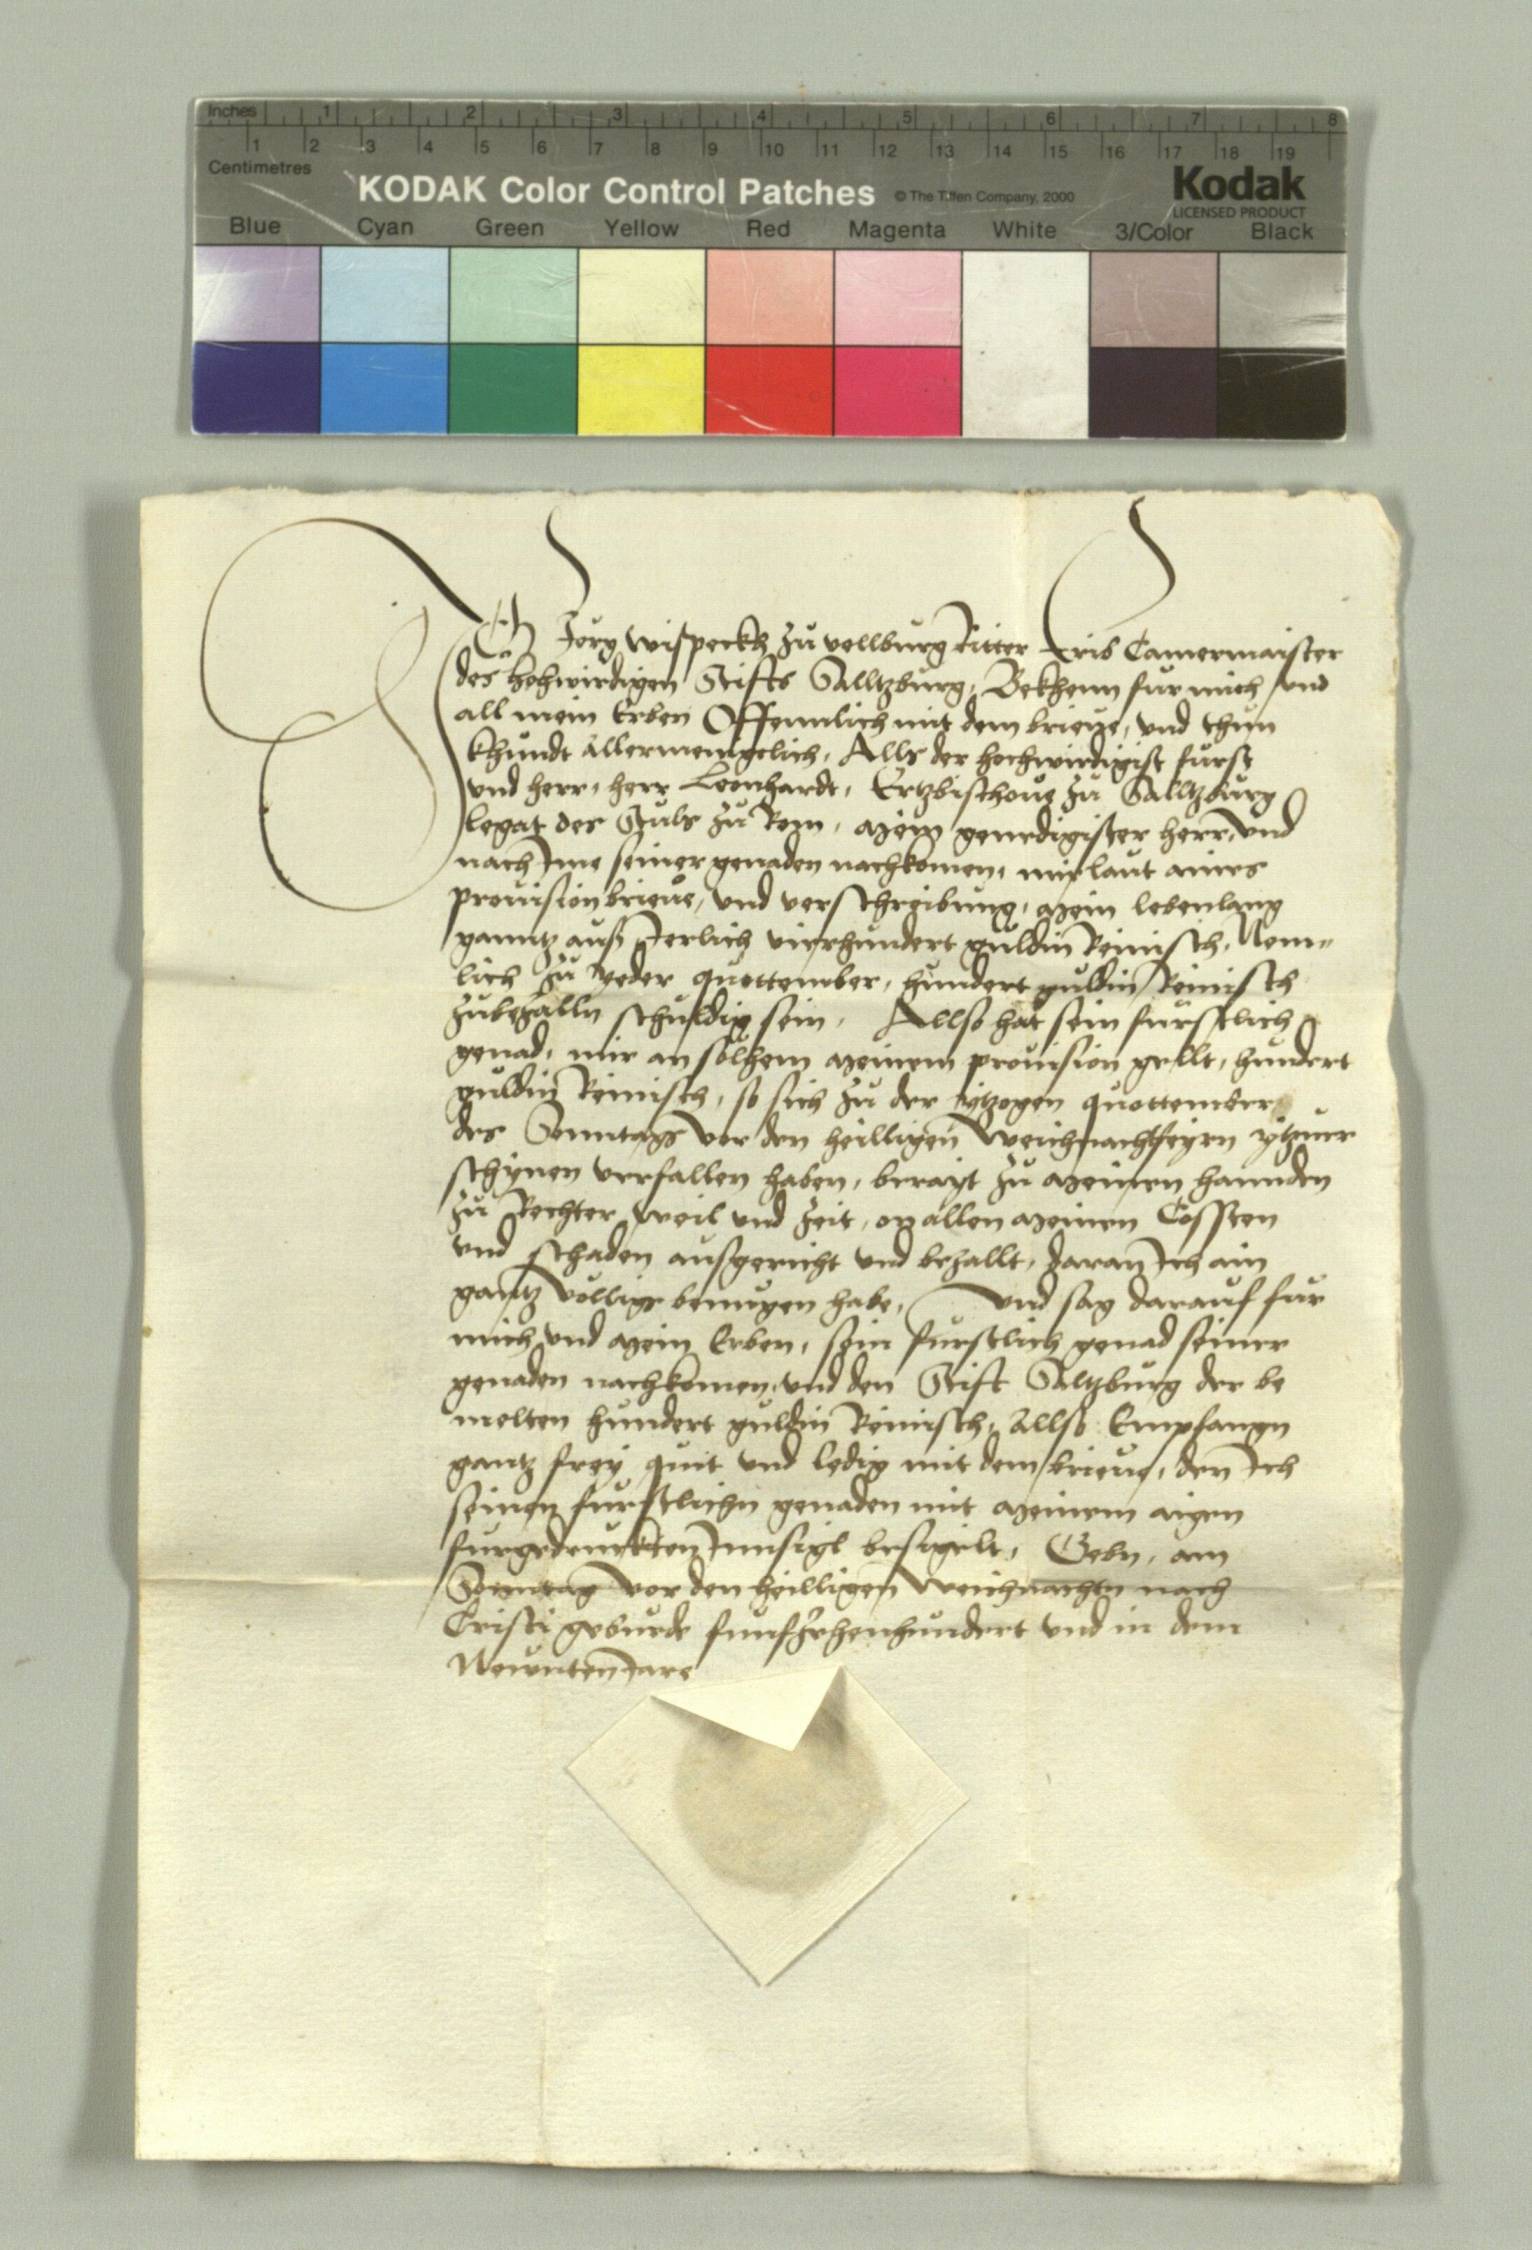 Inches 1 2 3 4 5 6 7 8
1 2 3 4 5 6 7 8 9 10 11 12 13 14 15 16 17 18 19
Centimetres
KODAK Color Control Patches © The Tiffen Company, 2000 Kodak
LICENSED PRODUCT
Blue Cyan Green Yellow Red Magenta White 3/Color Black
Ich Jorg Wispeckh zu vellburg Ritter Erib Camermaister
des hochwirdigen Stiffts Salltzburg, Bekhenn fur mich und
all mein Erben Offennlich mit dem brieve, und thun
khundt allermenigelich, Alls der hochwirdigist furst
und herr, herr Leonhardt, Ertzbischove zu Salltzburg
legat des Stuls zu Rom, mein genedigister herr, und
nach Ime seiner genaden nachkomen, mir laut aines
provision brieve, und verschreibung, mein lebenlang
ganntz auß Jerlich vierhundert guldin Reinisch, Nem„
lich zu yeder quottember, hundert guldin Reinisch
zubezalln schuldig sein, Allso hat sein furstlich
genad, mir an solhem meinem provision gellt, hundert
guldin Reinisch, so sich zu der ytzogen quottember
des Sonntags vor den heilligen Weichnachtfeyrn ytzuer
schynen verfallen haben, berayt zu meinen hannden
zu Rechter weil und zeit, on allen meinen Cossten
und schaden außgericht und bezallt, daran Ich ain
gantz vollige benugen habe, Und sag darauf fur
mich und mein Erben, sein furstlich genad seiner
genaden nachkomen, und den Stift Saltzburg der be
melten hundert guldin Reinisch, Allso Empfangn
gantz frey quit und ledig mit dem brieve, den Ich
seinen furstlichn genaden mit meinem aigen
furgedruckten Innsigl besigelt, Gebn, am
Sonntag vor den heilligen Weichnachtn nach
Cristi geburde funfzehenhundert und in dem
Newnten Jare